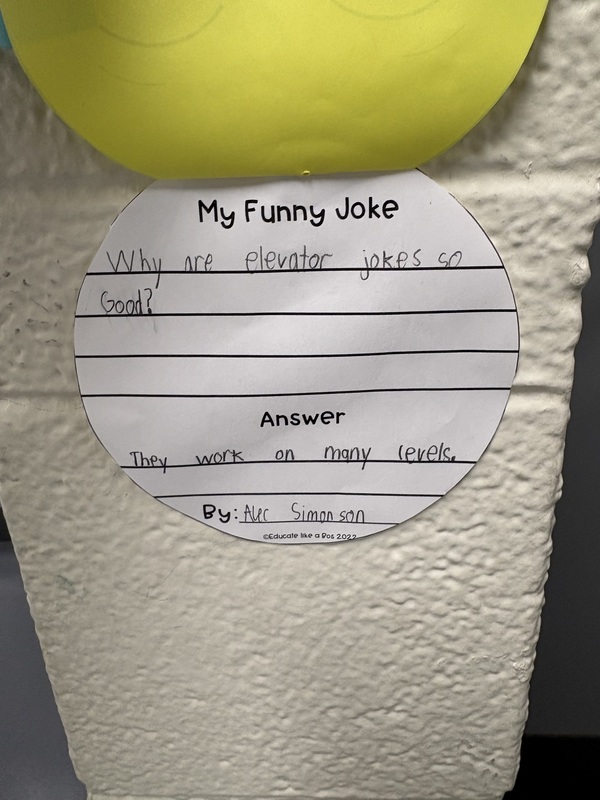 My Funny Joke
Why are elevator jokes so
Good?
Answer
They work on many levels.
By: Alec Simonson
©Educate like a Bos 2022